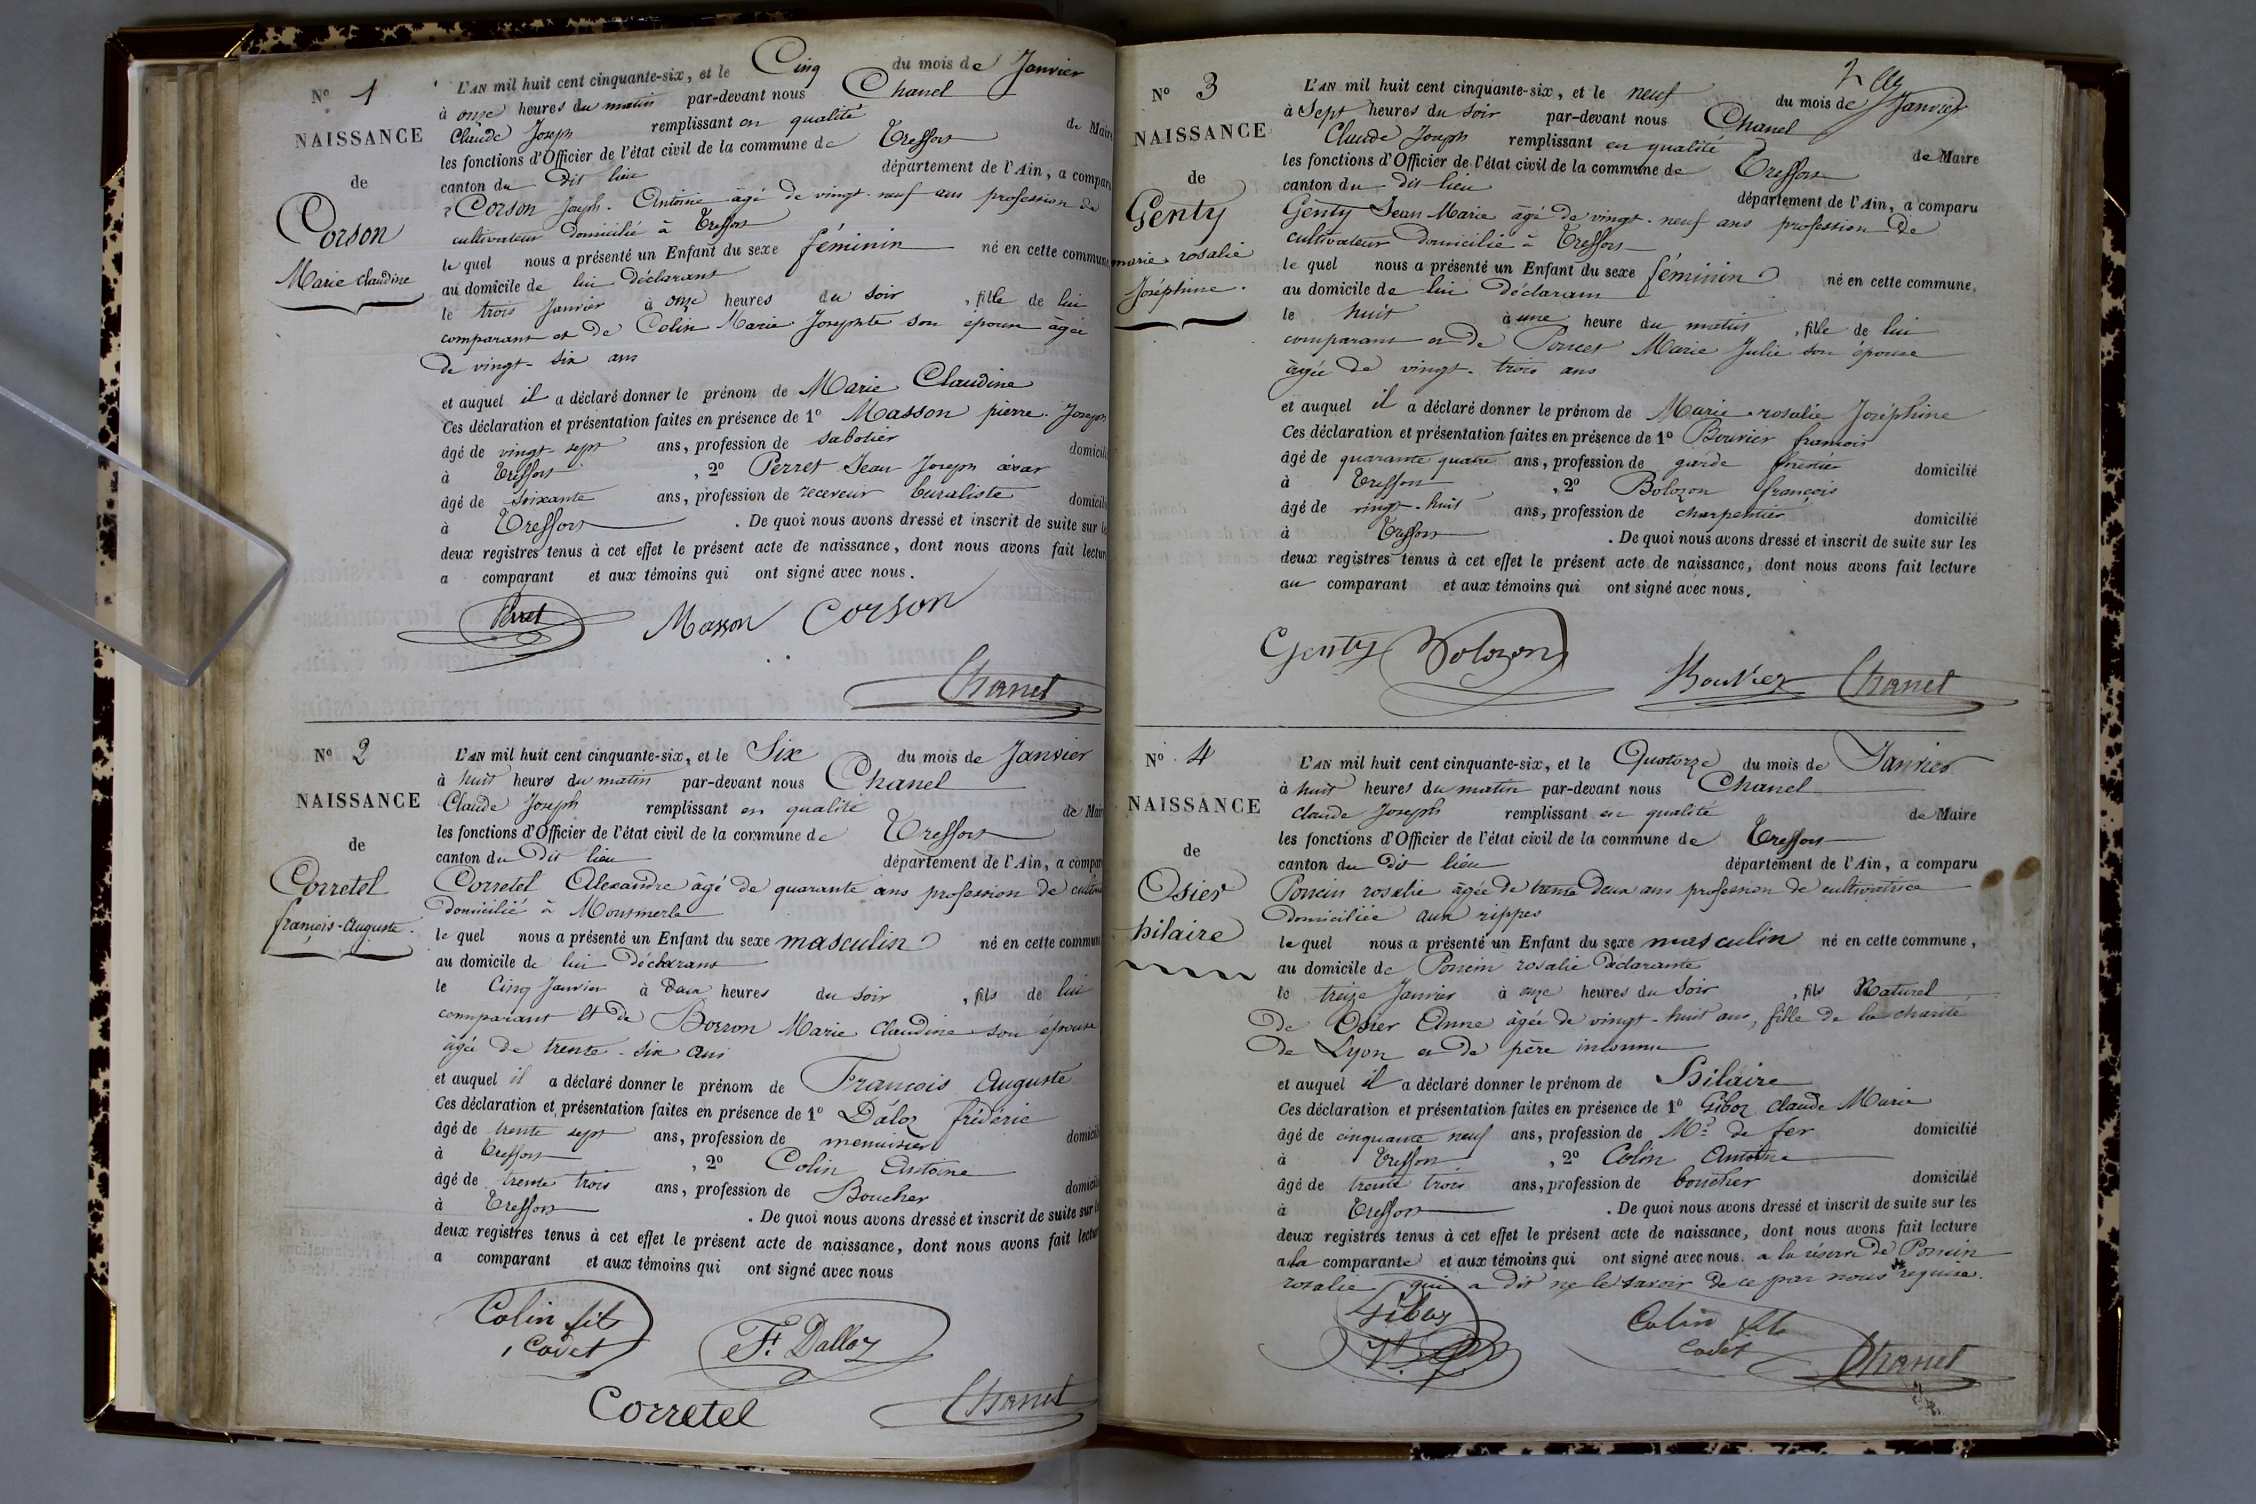 N° 1
NAISSANCE
de
Corson
Marie Claudine
L'AN mil huit cent cinquante-six, et le Cinq du mois de Janvier
à onze heures du matin par-devant nous Chanel
Claude Joseph remplissant en qualité de Maire
les fonctions d'Officier de l'état civil de la commune de Treffort
canton du dit lieu département de l'Ain, a comparu
Corson Joseph. Antoine âgé de vingt-neuf ans profession de
cultivateur domicilié à Treffort
le quel nous a présenté un Enfant du sexe féminin né en cette commune
au domicile de lui déclarant
le trois Janvier à onze heures du soir, fille de lui
comparant et de Colin Marie Josephte son épouse âgée
de vingt-six ans
et auquel il a déclaré donner le prénom de Marie Claudine
Ces déclaration et présentation faites en présence de 1° Masson pierre. Joseph
âgé de vingt-sept ans, profession de sabotier domicilié
à Treffort, 2° Perret Jean Joseph
âgé de soixante ans, profession de receveur buraliste domicilié
à Treffort. De quoi nous avons dressé et inscrit de suite sur les
deux registres tenus à cet effet le présent acte de naissance, dont nous avons fait lecture
a comparant et aux témoins qui ont signé avec nous.
Perret Masson Corson
Chanel
N° 2
NAISSANCE
de
Corretel
françois-Auguste.
L'AN mil huit cent cinquante-six, et le Six du mois de Janvier
à huit heures du matin par-devant nous Chanel
Claude Joseph remplissant en qualité de Maire
les fonctions d'Officier de l'état civil de la commune de Treffort
canton du Dit lieu département de l'Ain, a comparu
Corretel Alexandre âgé de quarante ans profession de
domicilié à Montmerle
le quel nous a présenté un Enfant du sexe masculin né en cette commune
au domicile de lui déclarant
le Cinq Janvier à deux heures du soir, fils de lui
comparant et de Borron Marie Claudine son épouse
âgée de trente-six ans
et auquel il a déclaré donner le prénom de François Auguste
Ces déclaration et présentation faites en présence de 1° Daloz frédéric
âgé de trente sept ans, profession de menuisier domicilié
à Treffort, 2° Colin Antoine
âgé de trente trois ans, profession de Boucher domicilié
à Treffort. De quoi nous avons dressé et inscrit de suite sur les
deux registres tenus à cet effet le présent acte de naissance, dont nous avons fait lecture
a comparant et aux témoins qui ont signé avec nous
Colin fils
cadet
F. Dalloz
Corretel Chanel
2
N° 3
NAISSANCE
de
Genty
marie rosalie
Joséphine.
L'AN mil huit cent cinquante-six, et le neuf du mois de Janvier
à Sept heures du soir par-devant nous Chanel
Claude Joseph remplissant en qualité de Maire
les fonctions d'Officier de l'état civil de la commune de Treffort
canton du dit lieu département de l'Ain, a comparu
Genty Jean-Marie âgé de vingt-neuf ans profession de
cultivateur domicilié à Treffort
le quel nous a présenté un Enfant du sexe féminin né en cette commune,
au domicile de lui déclarant
le huit à une heure du matin, fille de lui
comparant et de Poncet Marie Julie son épouse
âgée de vingt-trois ans
et auquel il a déclaré donner le prénom de Marie-rosalie Joséphine
Ces déclaration et présentation faites en présence de 1° Bouvier françois
âgé de quarante quatre ans, profession de garde domicilié
à Treffort, 2° Bolozon françois
âgé de vingt-huit ans, profession de charpentier domicilié
à Treffort. De quoi nous avons dressé et inscrit de suite sur les
deux registres tenus à cet effet le présent acte de naissance, dont nous avons fait lecture
au comparant et aux témoins qui ont signé avec nous.
Genty Bolozon Bouvier Chanel
N° 4
NAISSANCE
de
Osier
hilaire
L'AN mil huit cent cinquante-six, et le Quatorze du mois de Janvier
à huit heures du matin par-devant nous Chanel
claude Joseph remplissant en qualité de Maire
les fonctions d'Officier de l'état civil de la commune de Treffort
canton du dit lieu département de l'Ain, a comparu
Poncin rosalie âgée de trente deux ans profession de cultivatrice
domiciliée aux rippes
le quel nous a présenté un Enfant du sexe masculin né en cette commune,
au domicile de Poncin rosalie déclarante
le treize Janvier à onze heures du Soir, fils Naturel
de Osier Anne âgée de vingt-huit ans, fille de la charité
de Lyon et de père inconnu
et auquel il a déclaré donner le prénom de Hilaire
Ces déclaration et présentation faites en présence de 1° Giboz Claude Marie
âgé de cinquante neuf ans, profession de Md de fer domicilié
à Treffort, 2° Colin Antoine
âgé de trente trois ans, profession de boucher domicilié
à Treffort. De quoi nous avons dressé et inscrit de suite sur les
deux registres tenus à cet effet le présent acte de naissance, dont nous avons fait lecture
a la comparante et aux témoins qui ont signé avec nous. a la réserve de Poncin
rosalie qui a dit ne le savoir de ce par nous requise.
Giboz
Colin fils
cadet
Chanel